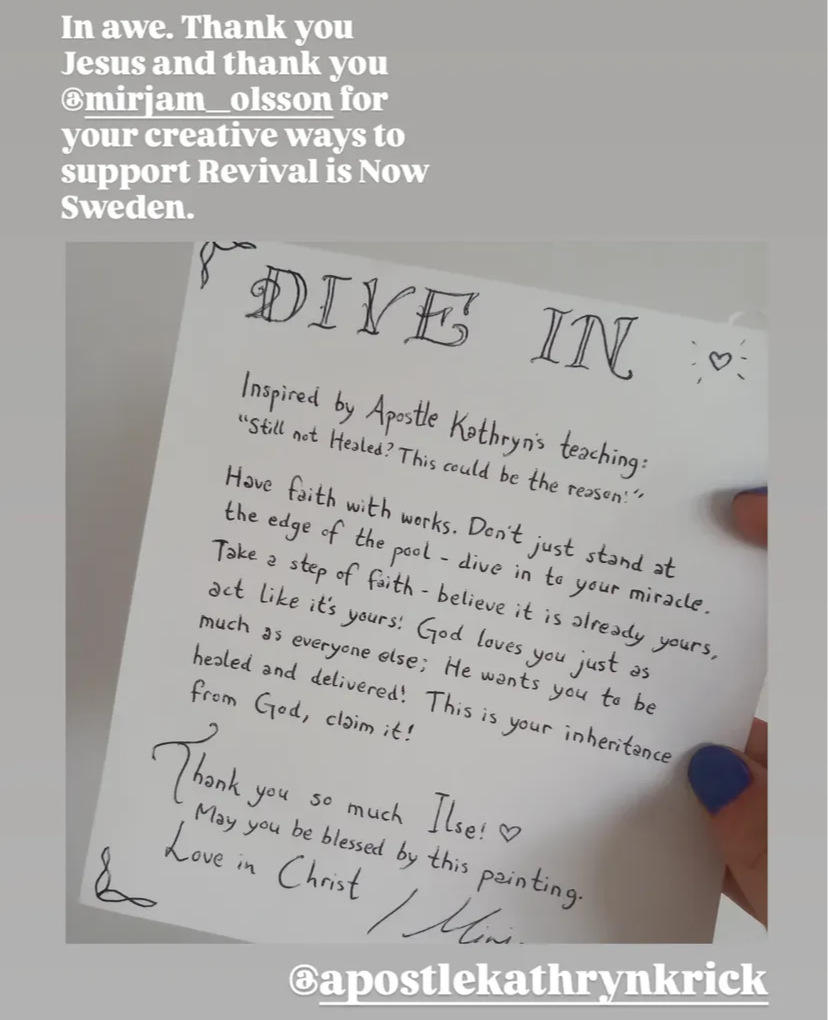 In awe. Thank you
Jesus and thank you
@mirjam_olsson for
your creative ways to
support Revival is Now
Sweden.
DIVE IN
Inspired by Apostle Kathryn's teaching:
"Still not Healed? This could be the reason!"
Have faith with works. Don't just stand at
the edge of the pool - dive in to your miracle.
Take a step of faith - believe it is already yours,
act like it's yours! God loves you just as
much as everyone else; He wants you to be
healed and delivered! This is your inheritance
from God, claim it!
Thank you so much Ilse! ♡
May you be blessed by this painting.
Love in Christ
/ Mini
@apostlekathrynkrick